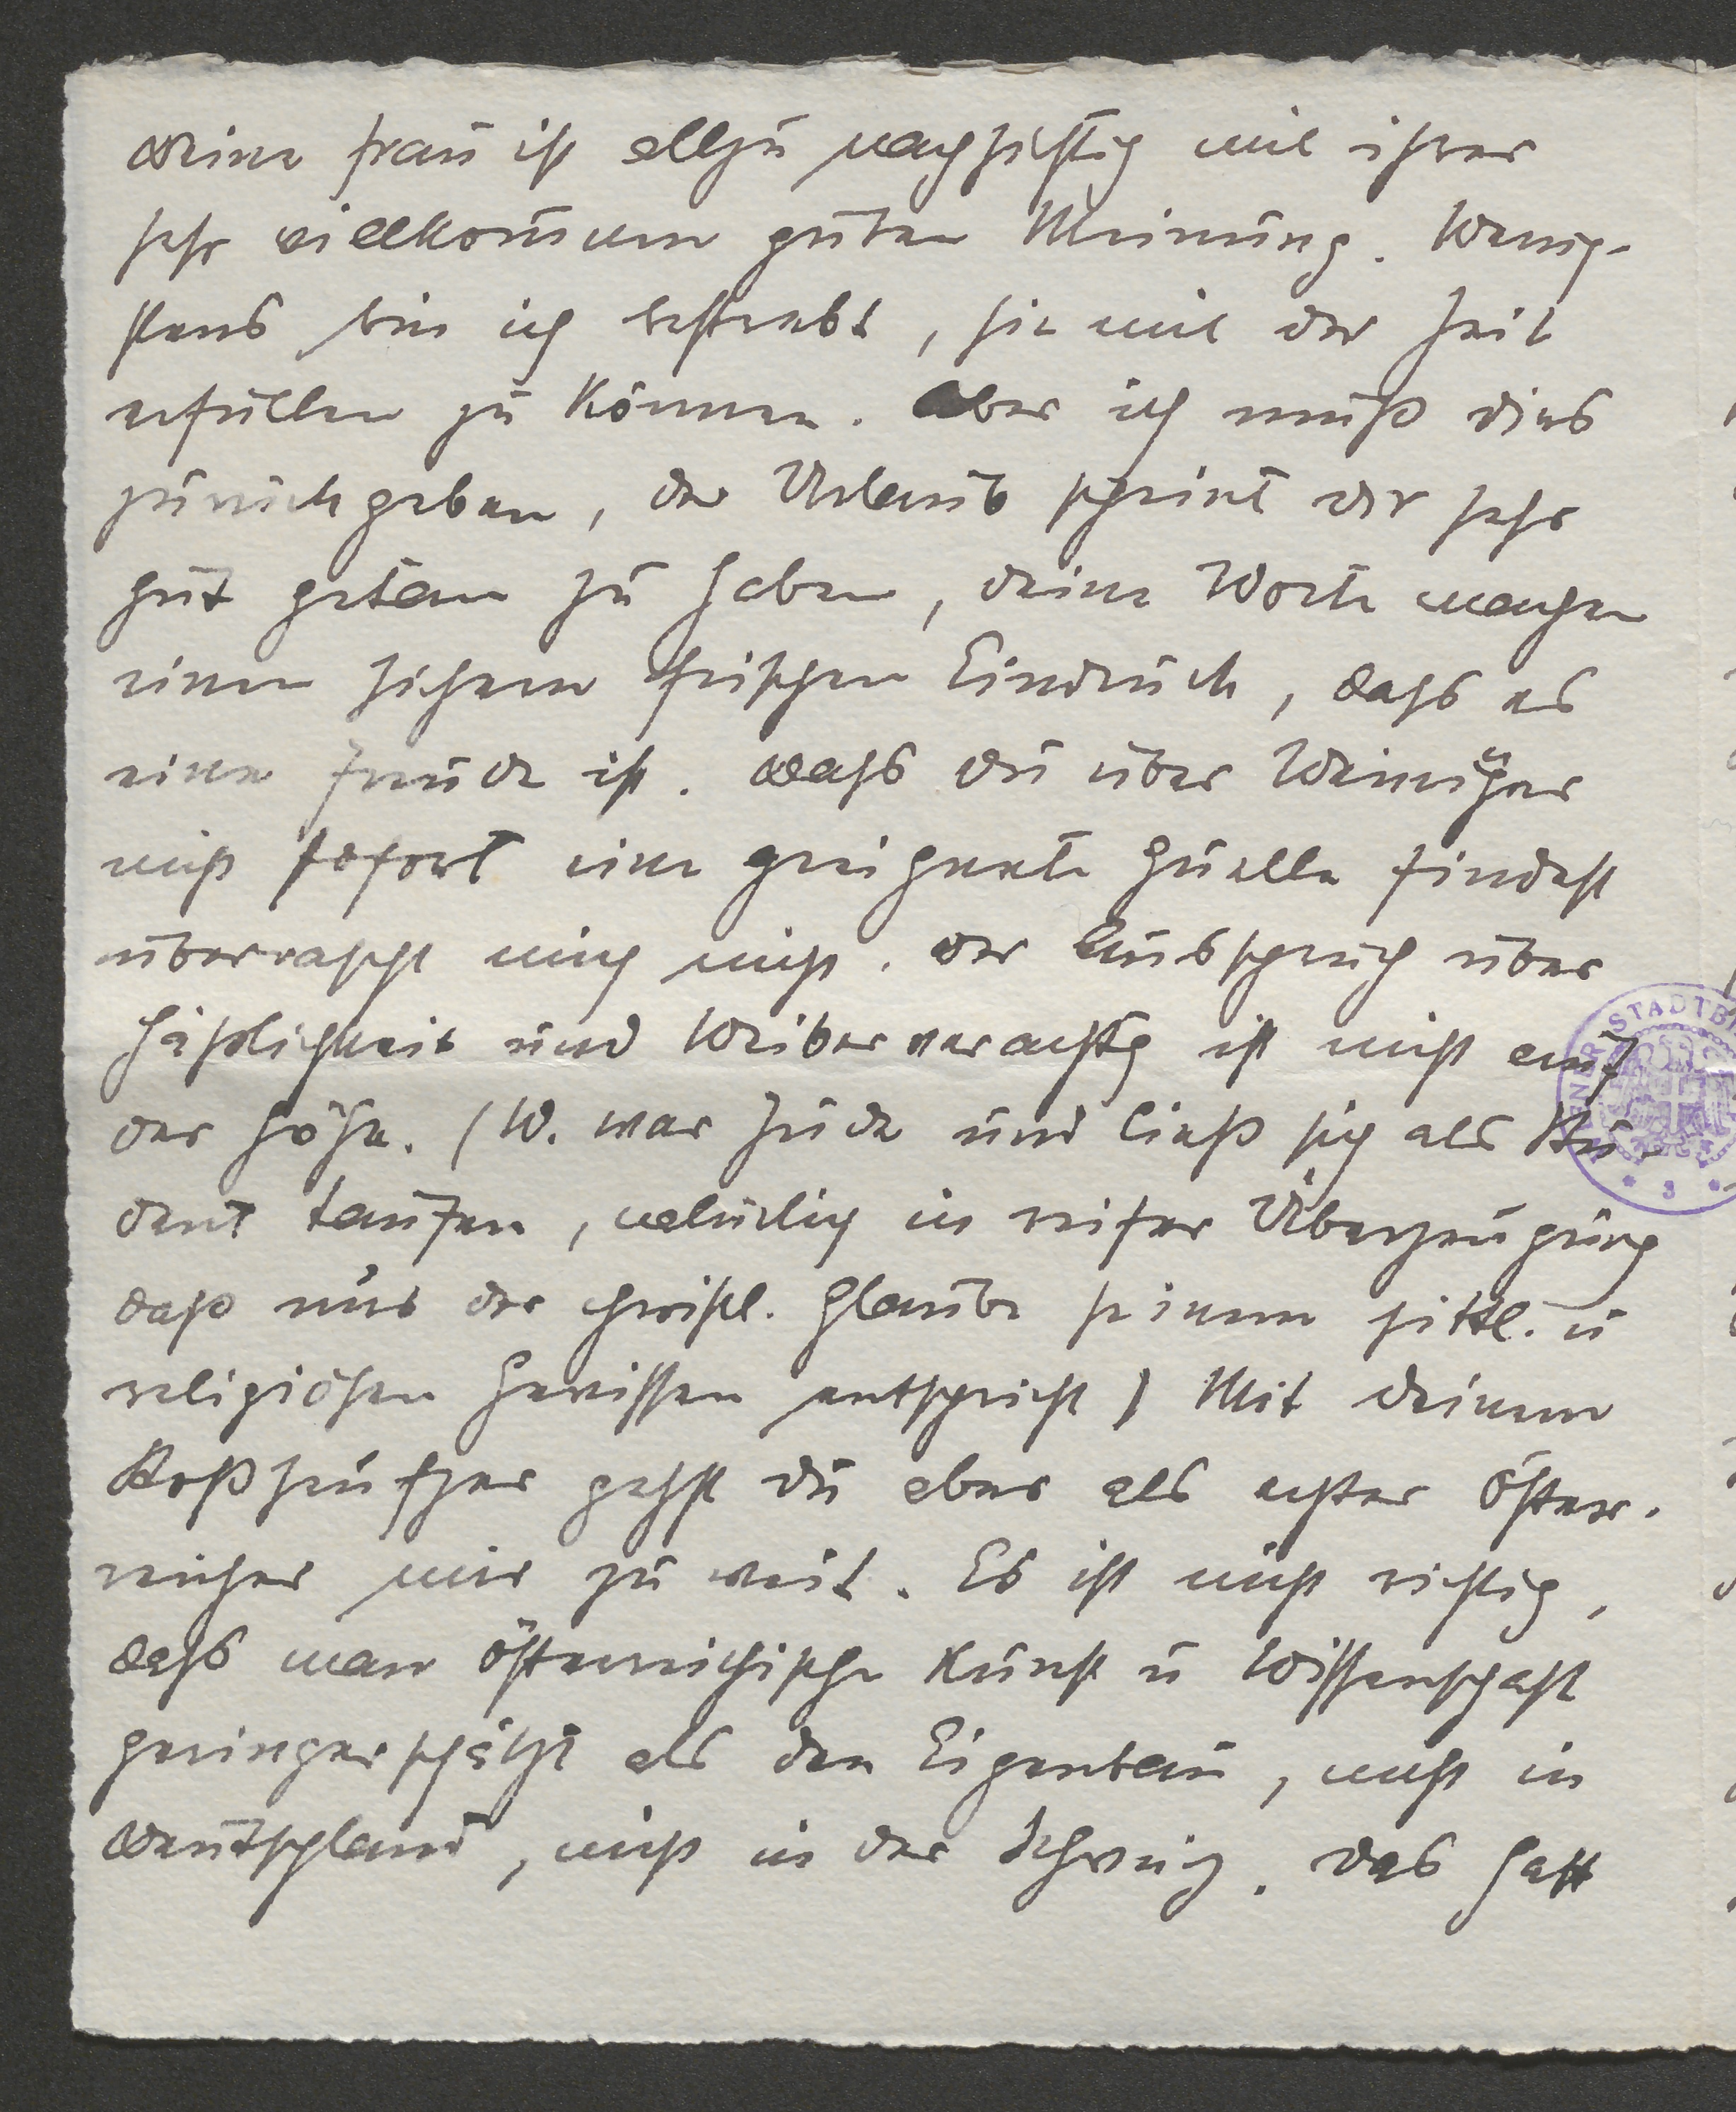 Deine Frau ist allzu nachsichtig mit ihrer
sehr willkommen guten Meinung. Wenig-
stens bin ich bestrebt, sie mit der Zeit
erfüllen zu können. Aber ich muß dies
zurückgeben, der Urlaub scheint dir sehr
gut getan zu haben, deine Worte machen
einen sichern frischen Eindruck, dass es
eine Freude ist. Dass du über Weininger
nicht sofort eine geeignete Quelle findest
überrascht mich nicht. Der Ausspruch über
Häßlichkeit und Weiberverachtg ist nicht auf
der Höhe. (W. war Jude und ließ sich als Stu-
dent taufen, natürlich in reifer Überzeugung
daß nur der christl. Glaube seinem sittl. u
religiösen Gewissen entspricht) Mit deinem
Stoßseufzer gehst du aber als echter Öster-
reicher mir zu weit. Es ist nicht richtig,
dass man österreichische Kunst u Wissenschaft
geringer schätzt als den Eigenbau, nicht in
Deutschland, nicht in der Schweiz. Das hast
WIENER STADTB
* 3 *